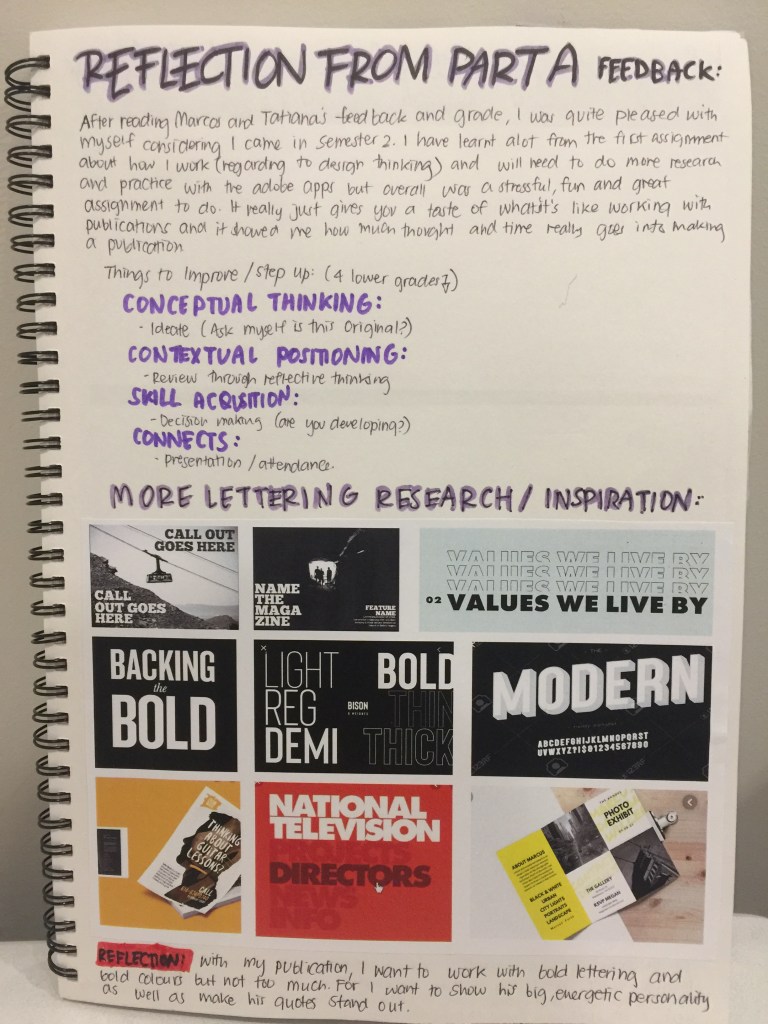 REFLECTION FROM PART A FEEDBACK:
After reading Marcos and Tatiana's feedback and grade, I was quite pleased with
myself considering I came in semester 2. I have learnt alot from the first assignment
about how I work (regarding to design thinking) and will need to do more research
and practice with the adobe apps but overall was a stressful, fun and great
assignment to do. It really just gives you a taste of what it's like working with
publications and it showed me how much thought and time really goes into making
a publication
Things to Improve / step up: (4 lower grades)
CONCEPTUAL THINKING:
- Ideate (Ask myself is this original?)
CONTEXTUAL POSITIONING:
- Review through reflective thinking
SKILL ACQUSITION:
- Decision making (are you developing?)
CONNECTS:
- Presentation / attendance.
MORE LETTERING RESEARCH / INSPIRATION:
CALL OUT
GOES HERE
CALL
OUT GOES
HERE
NAME
THE
MAGA
ZINE
FEATURE
NAME
VALUES WE LIVE BY
VALUES WE LIVE BY
VALUES WE LIVE BY
02 VALUES WE LIVE BY
BACKING
the
BOLD
LIGHT
REG
DEMI
BISON
BOLD
THIN
THICK
MODERN
ABCDEFGHIJKLMNOPQRST
UVWXYZ?!$01234567890
THINKING
ABOUT
GUITAR
LESSONS?
CALL
NATIONAL
TELEVISION
DIRECTORS
PHOTO
EXHIBIT
ABOUT MARCUS
BLACK & WHITE
URBAN
CITY LIGHTS
PORTRAITS
LANDSCAPE
THE GALLERY
RSVP MEGAN
REFLECTION: With my publication, I want to work with bold lettering and
bold colours but not too much. For I want to show his big, energetic personality
as well as make his quotes stand out.